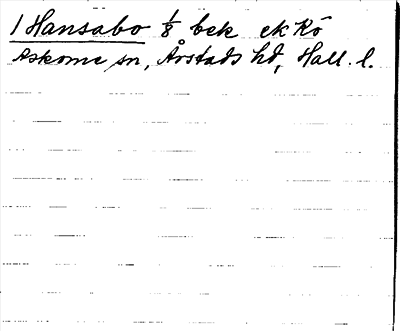 1 Hansabo 1/8 bek ek Kö
Askome sn, Årstads hd, Hall. l.